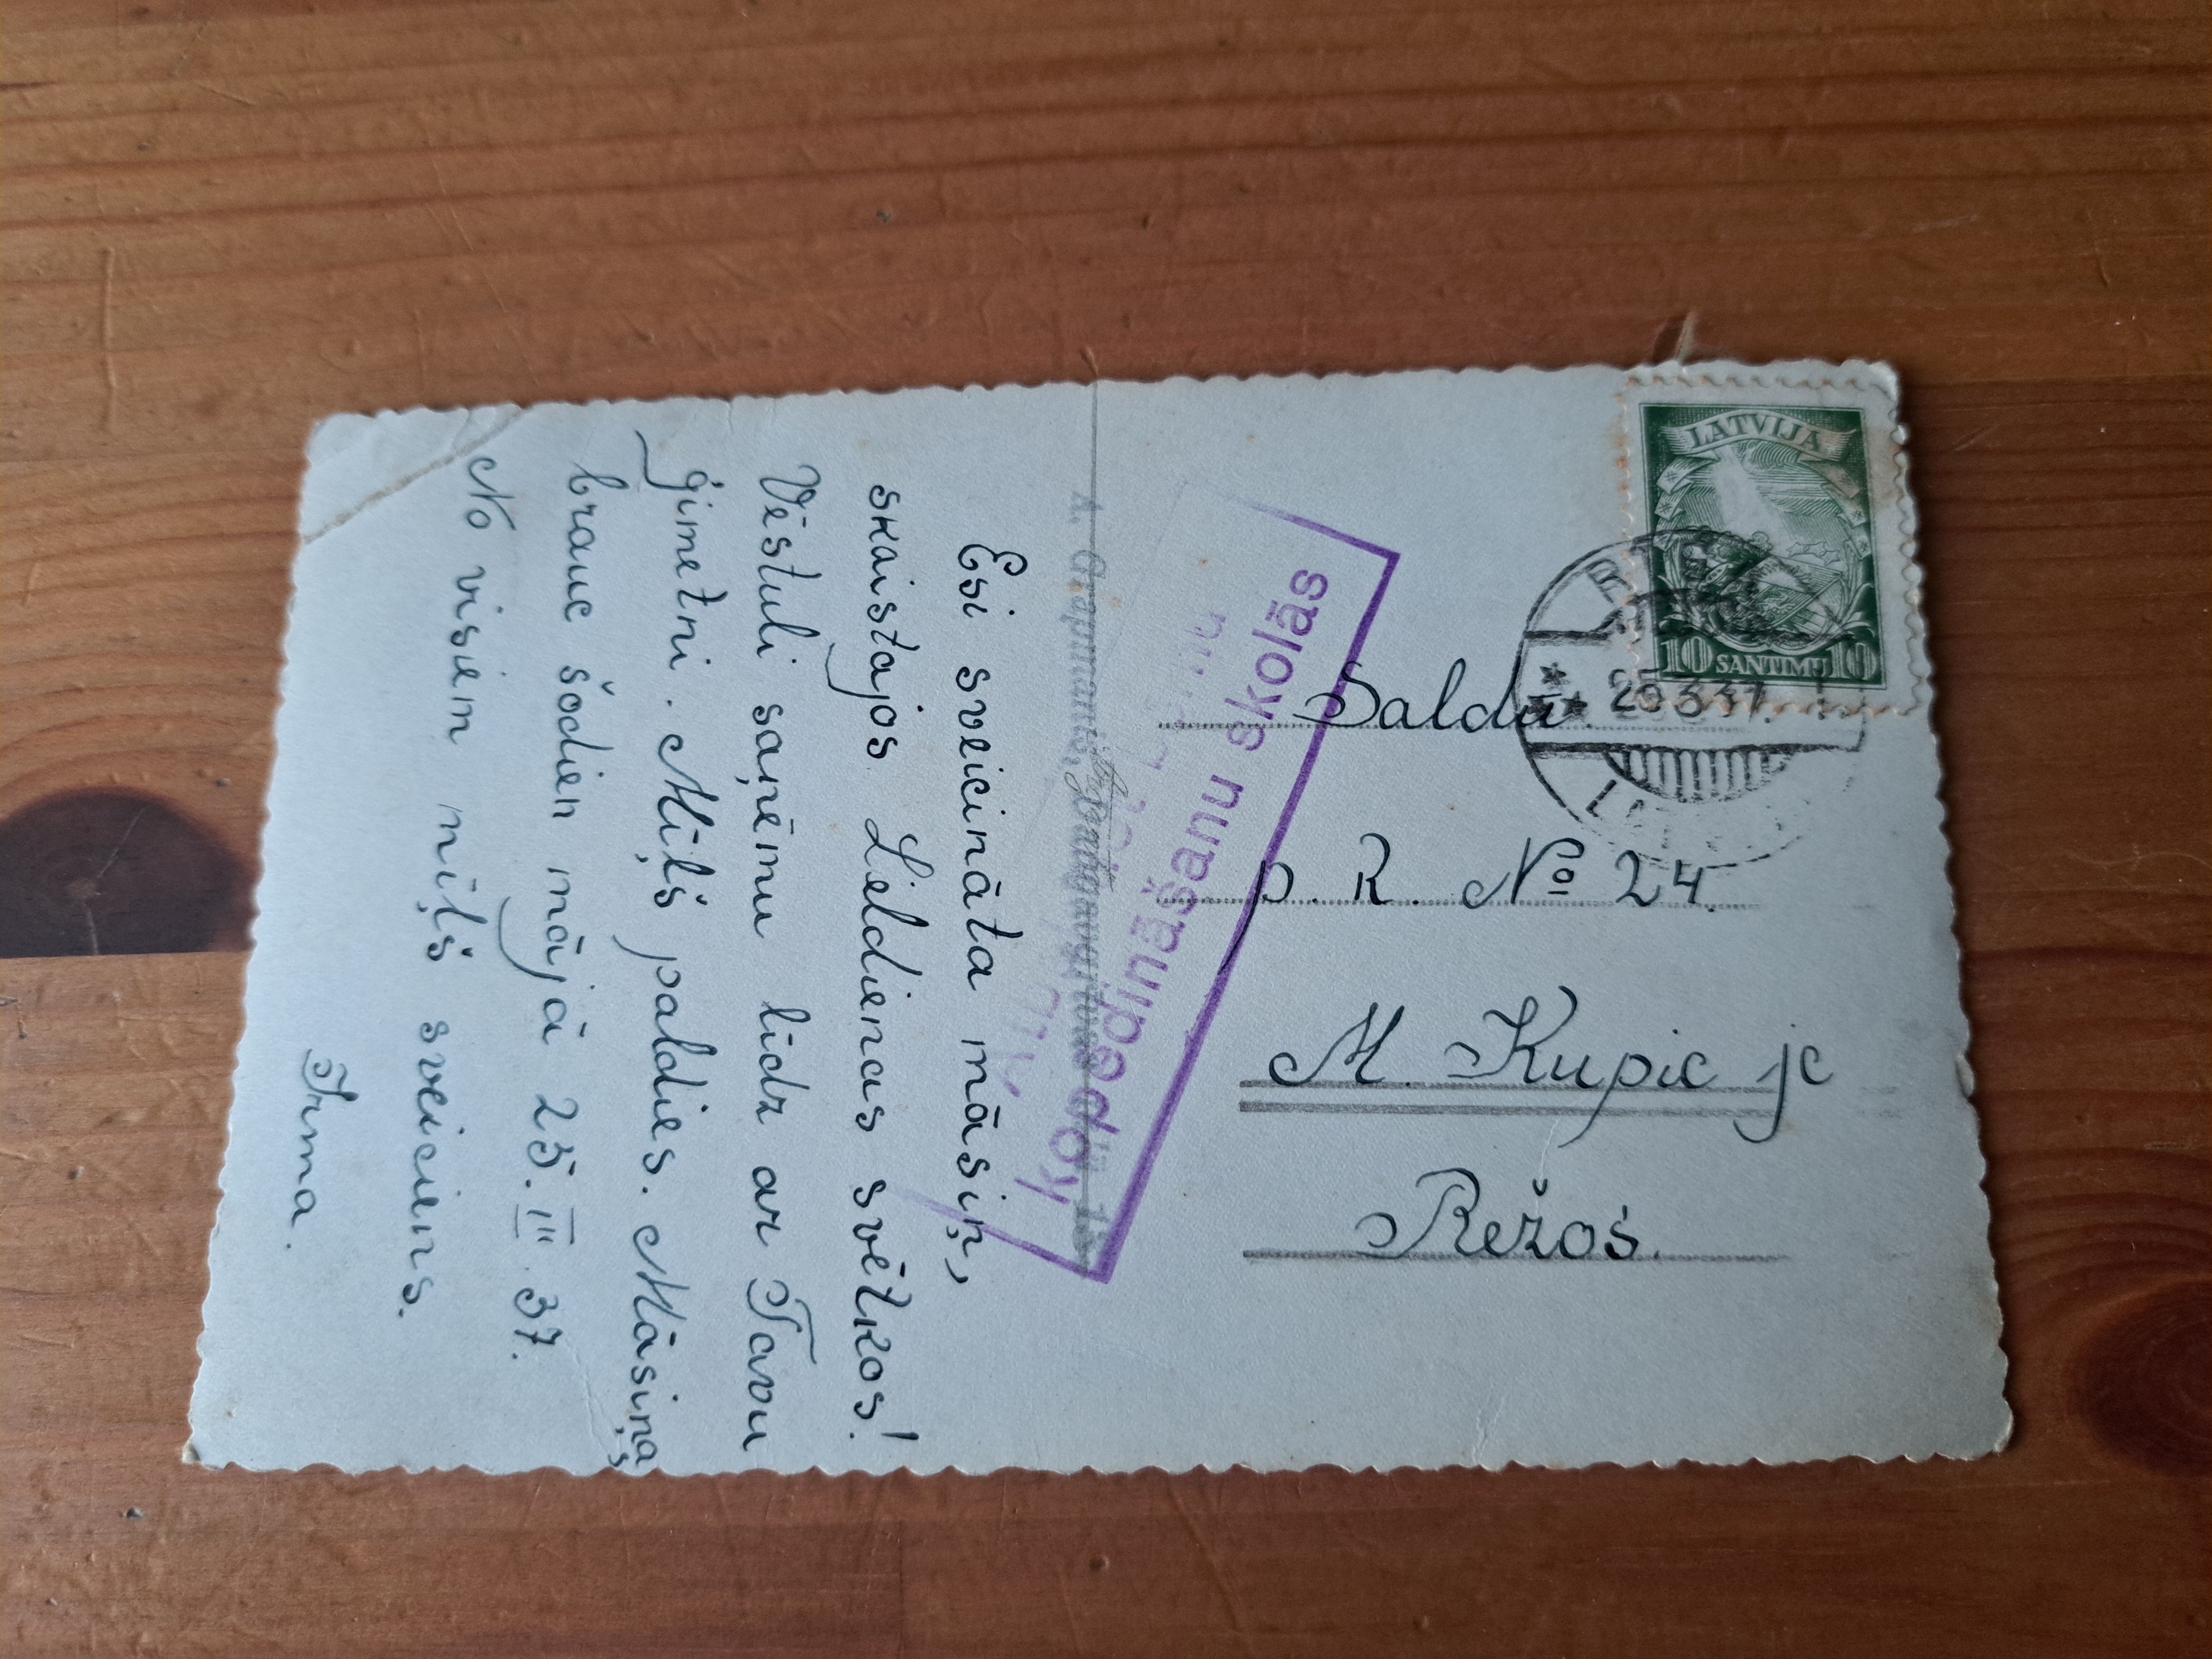 Esi sveicināta māsiņ,
skaistajos Lieldienas svētkos!
Vēstuli saņēmu līdz ar Tavu
ģimetni. Mīļš paldies. Māsiņa
brauc šodien mājā 25. III 37.
No visiem mīļš sveiciens.
Irma.
kopēdināšanu skolās
LATVIJA
10 SANTIMU 10
25 3 37.
Saldū.
p. R. No 24.
M. Kupic jc
Režos.